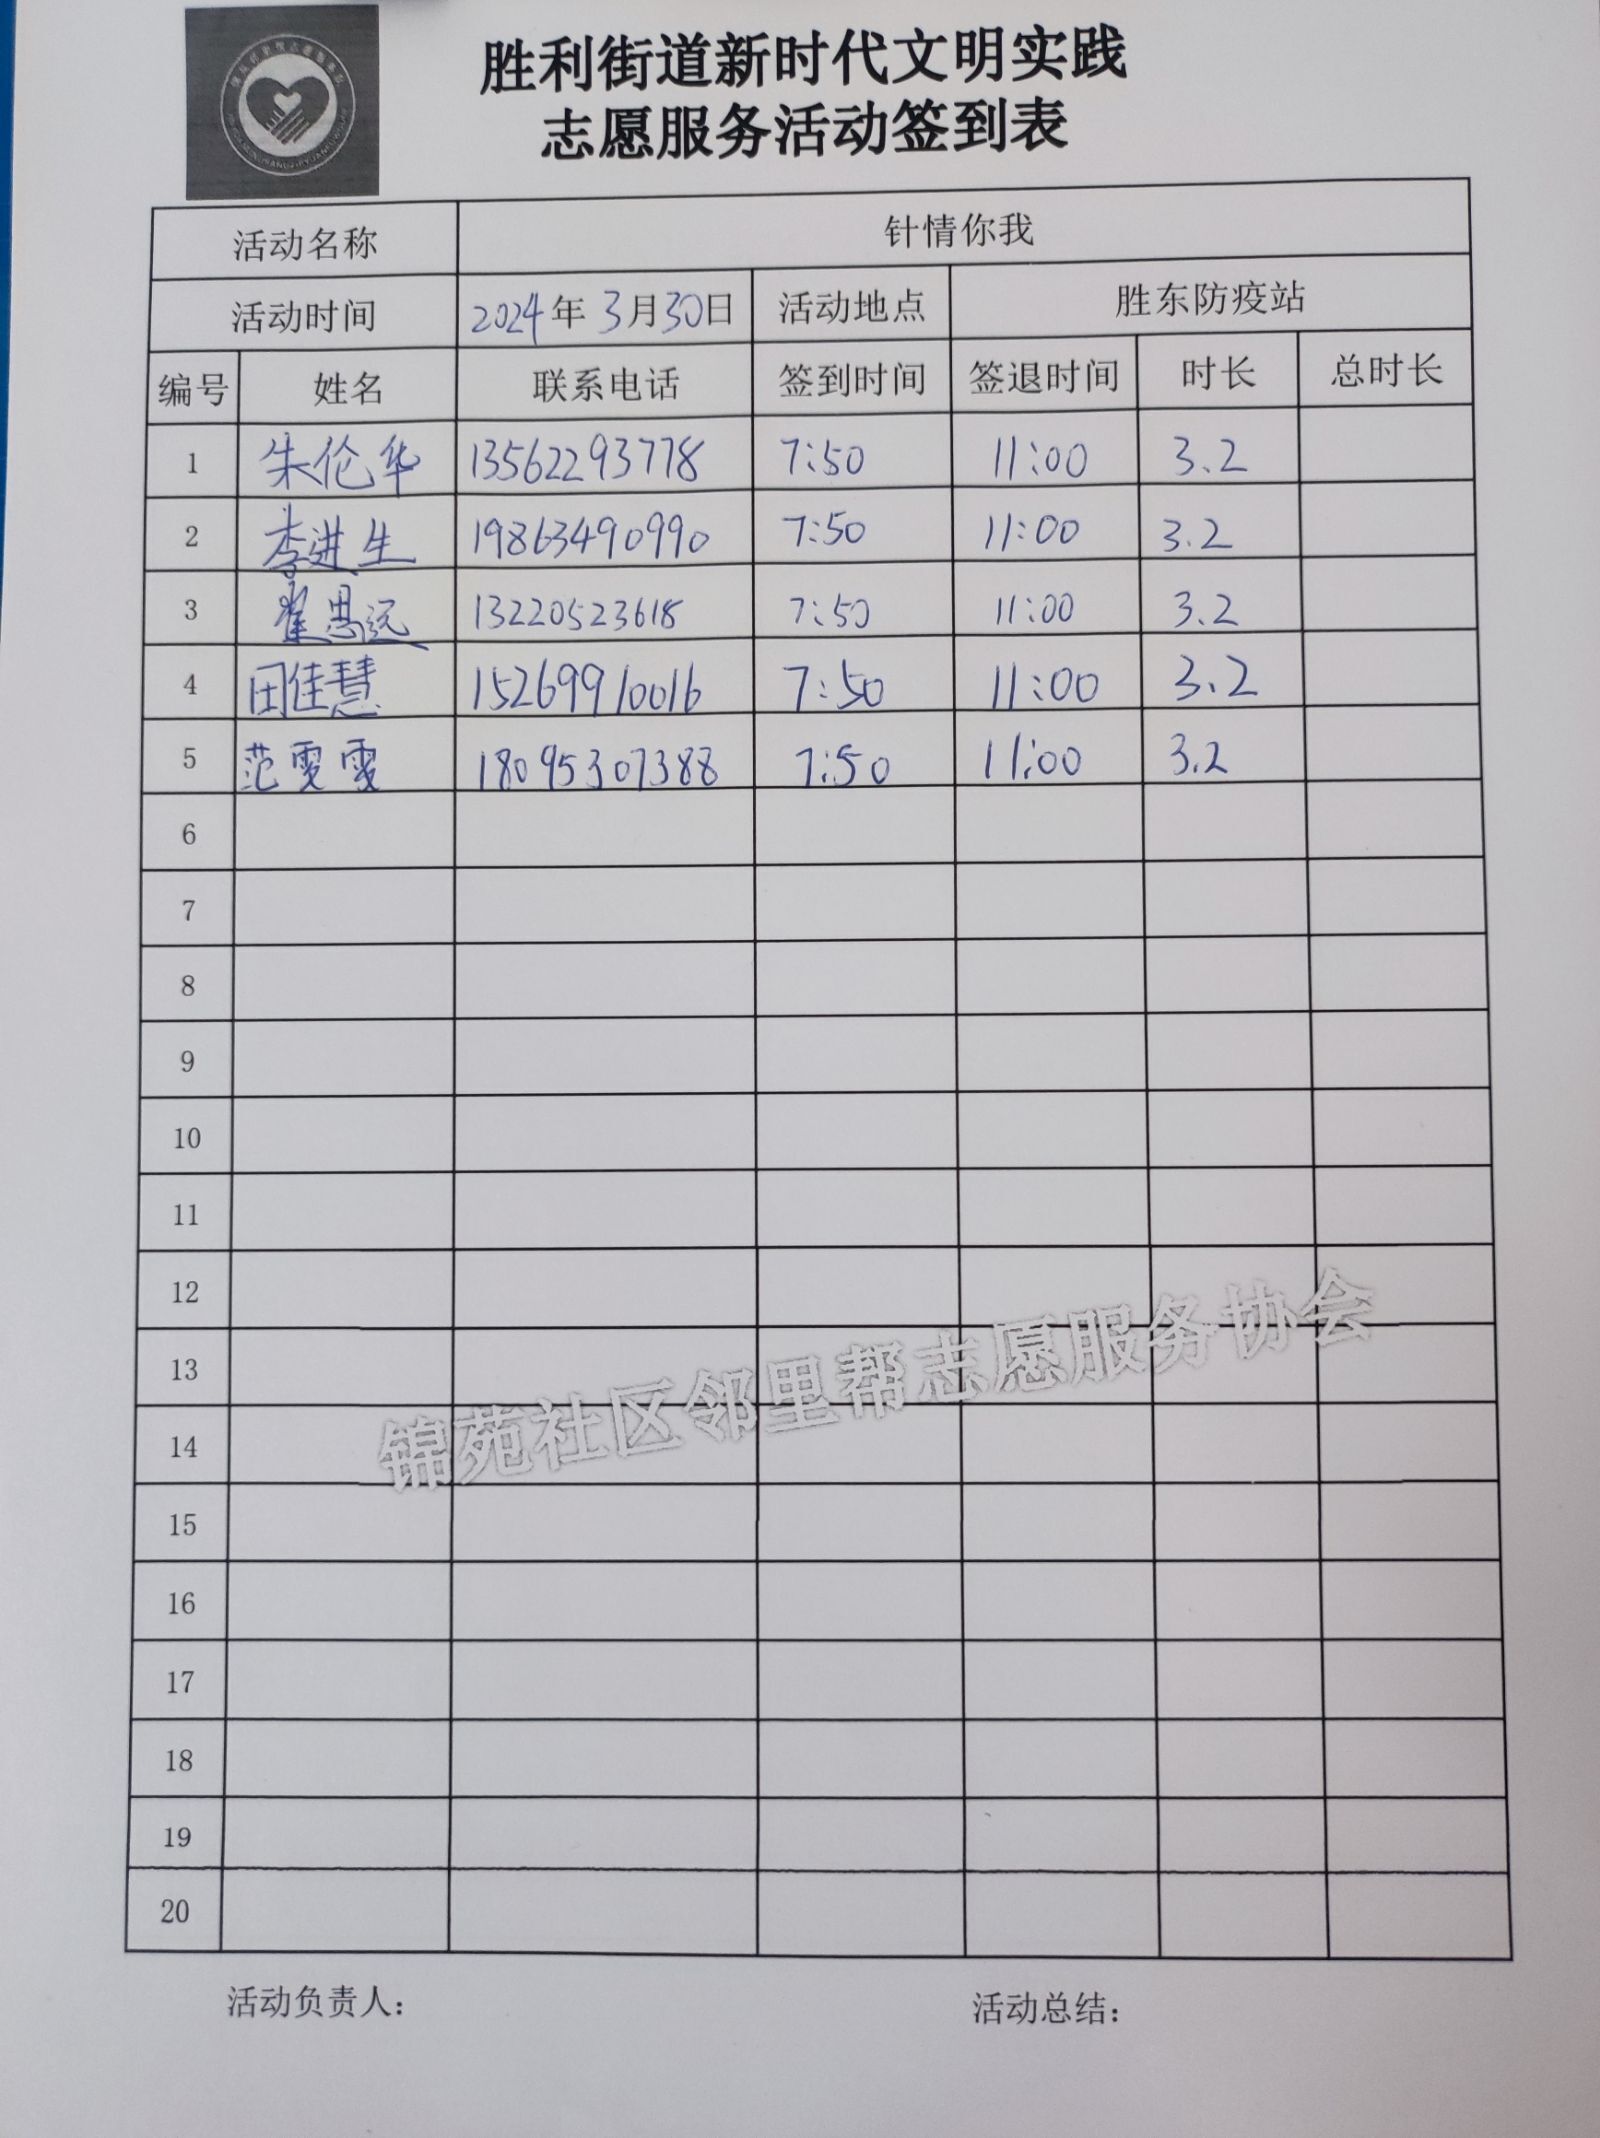 胜利街道新时代文明实践
志愿服务活动签到表
活动名称 针情你我
活动时间 2024年3月30日 活动地点 胜东防疫站
编号 姓名 联系电话 签到时间 签退时间 时长 总时长
1 朱伦华 13562293778 7:50 11:00 3.2
2 李进生 19863490990 7:50 11:00 3.2
3 翟思远 13220523618 7:50 11:00 3.2
4 田佳慧 15269910016 7:50 11:00 3.2
5 范雯雯 18095307388 7:50 11:00 3.2
6
7
8
9
10
11
12
13
14
15
16
17
18
19
20
锦苑社区邻里帮志愿服务协会
活动负责人： 活动总结：